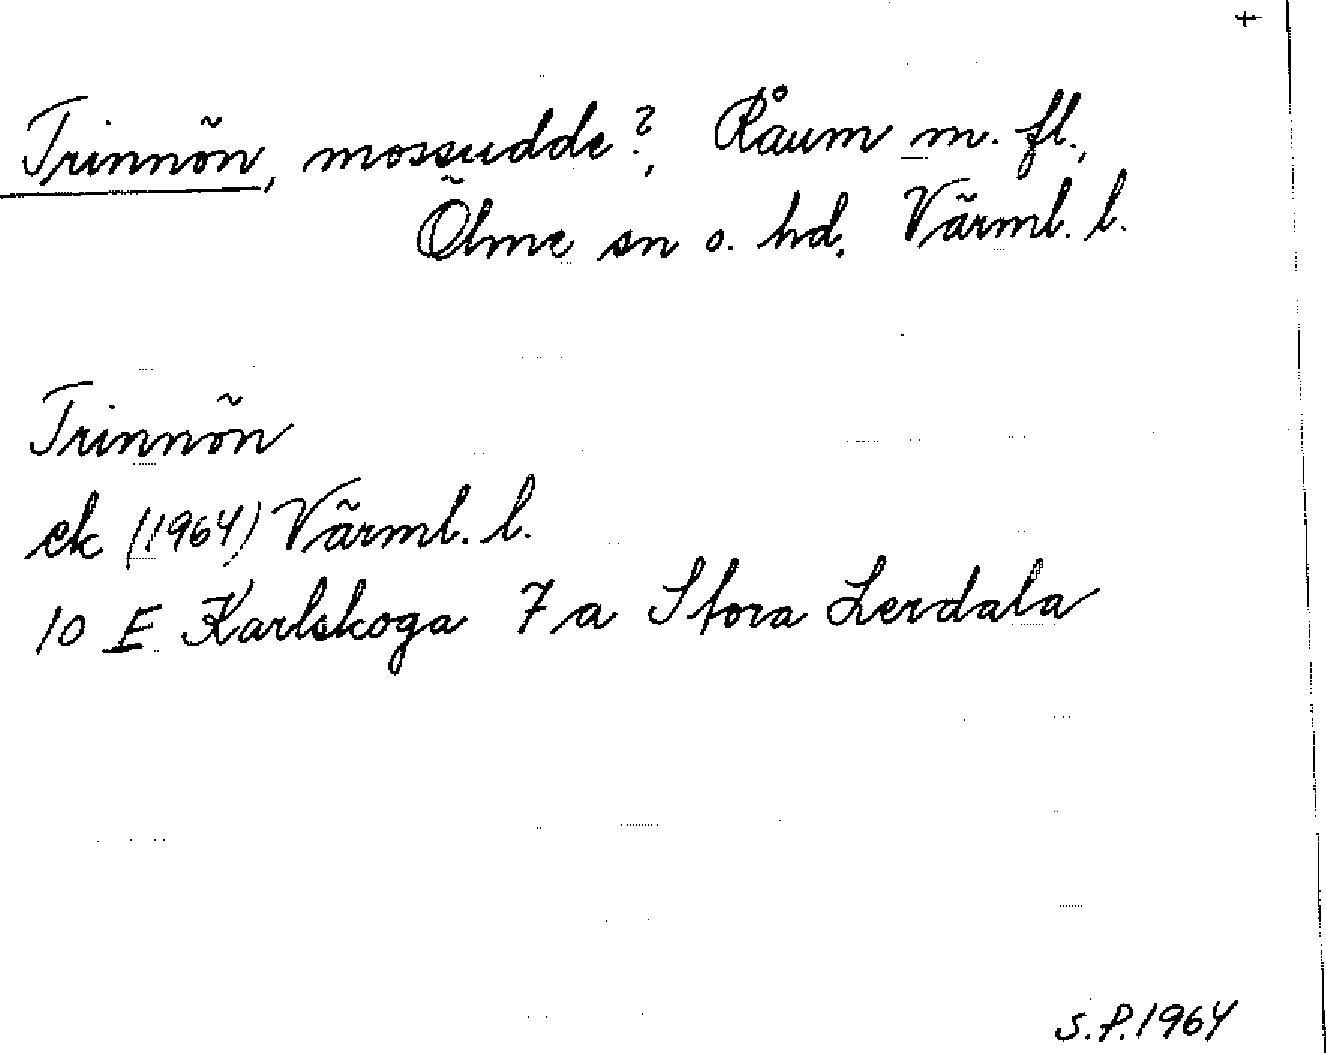 Trinnön, mossudde?, Råum m. fl.,
Ölme sn o. hd. Värml. l.
Trinnön
ek (1964) Värml. l.
10 E Karlskoga 7 a Stora Lerdala
S.P. 1964